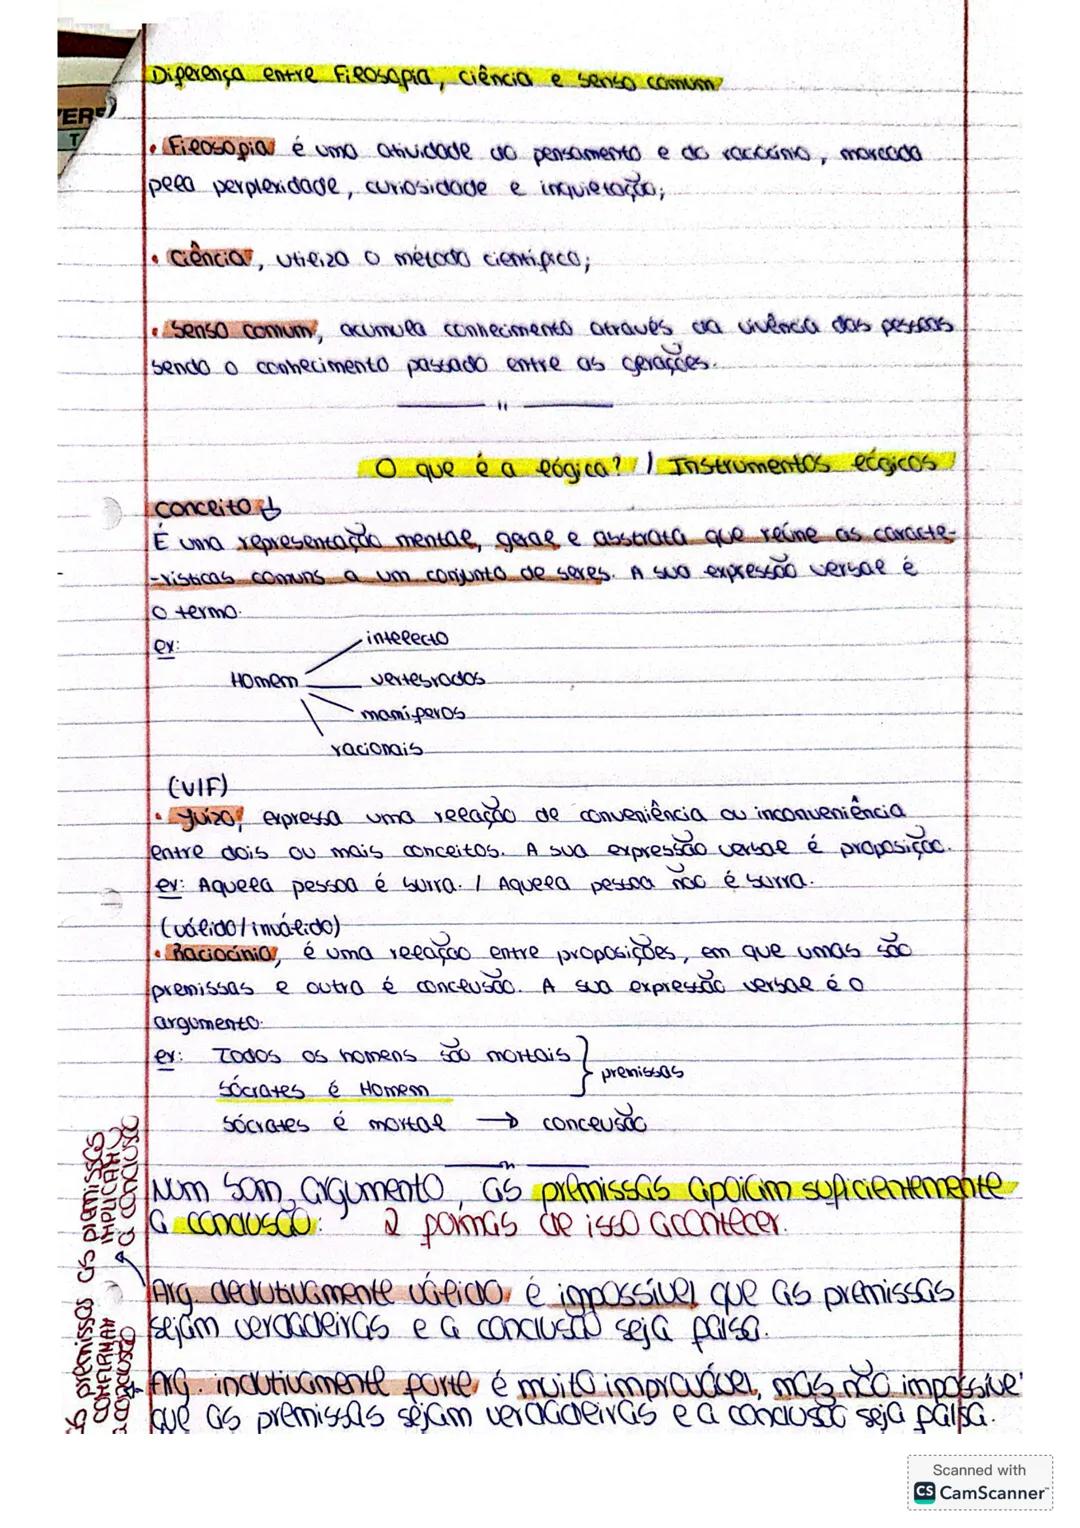 Diferença entre Filosofia, ciência e senso comum
VERS
T
• Filosofia é uma atividade do pensamento e do raciocínio, marcada
pela perplexidade, curiosidade e inquietação;
• Ciência, utiliza o método científico;
• Senso comum, acumula conhecimento através da vivência das pessoas
sendo o conhecimento passado entre as gerações.
O que é a lógica? / Instrumentos lógicos
Conceito ↓
É uma representação mental, geral e abstrata que reúne as caracte-
-rísticas comuns a um conjunto de seres. A sua expressão verbal é
o termo.
ex:
intelecto
Homem
vertebrados
mamíferos
racionais
(V/F)
• Juízo, expressa uma relação de conveniência ou inconveniência
entre dois ou mais conceitos. A sua expressão verbal é proposição.
ex: Aquela pessoa é burra. / Aquela pessoa não é burra.
(válido/inválido)
• Raciocínio, é uma relação entre proposições, em que umas são
premissas e outra é conclusão. A sua expressão verbal é o
argumento.
ex: Todos os homens são mortais
Sócrates é Homem
premissas
Sócrates é mortal → conclusão
Num bom argumento, as premissas apoiam suficientemente
a conclusão: 2 formas de isso acontecer.
Arg. dedutivamente válido, é impossível que as premissas
sejam verdadeiras e a conclusão seja falsa.
as premissas
IMPLICAM
a conclusão
Arg. indutivamente forte, é muito improvável, mas não impossível
que as premissas sejam verdadeiras e a conclusão seja falsa.
as premissas
CONFIRMAM
a conclusão
Scanned with
CS CamScanner